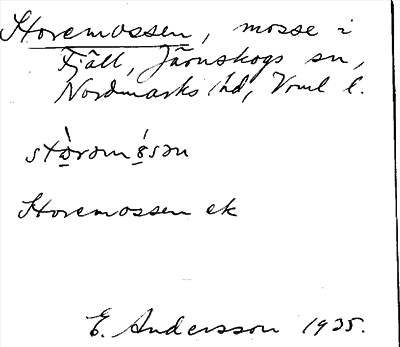 Storemossen, mosse i
Fjäll, Järnskogs sn,
Nordmarks hd, Vrml l.
stò̱rəmó̱sən
Storemossen ek
E. Andersson 1935.